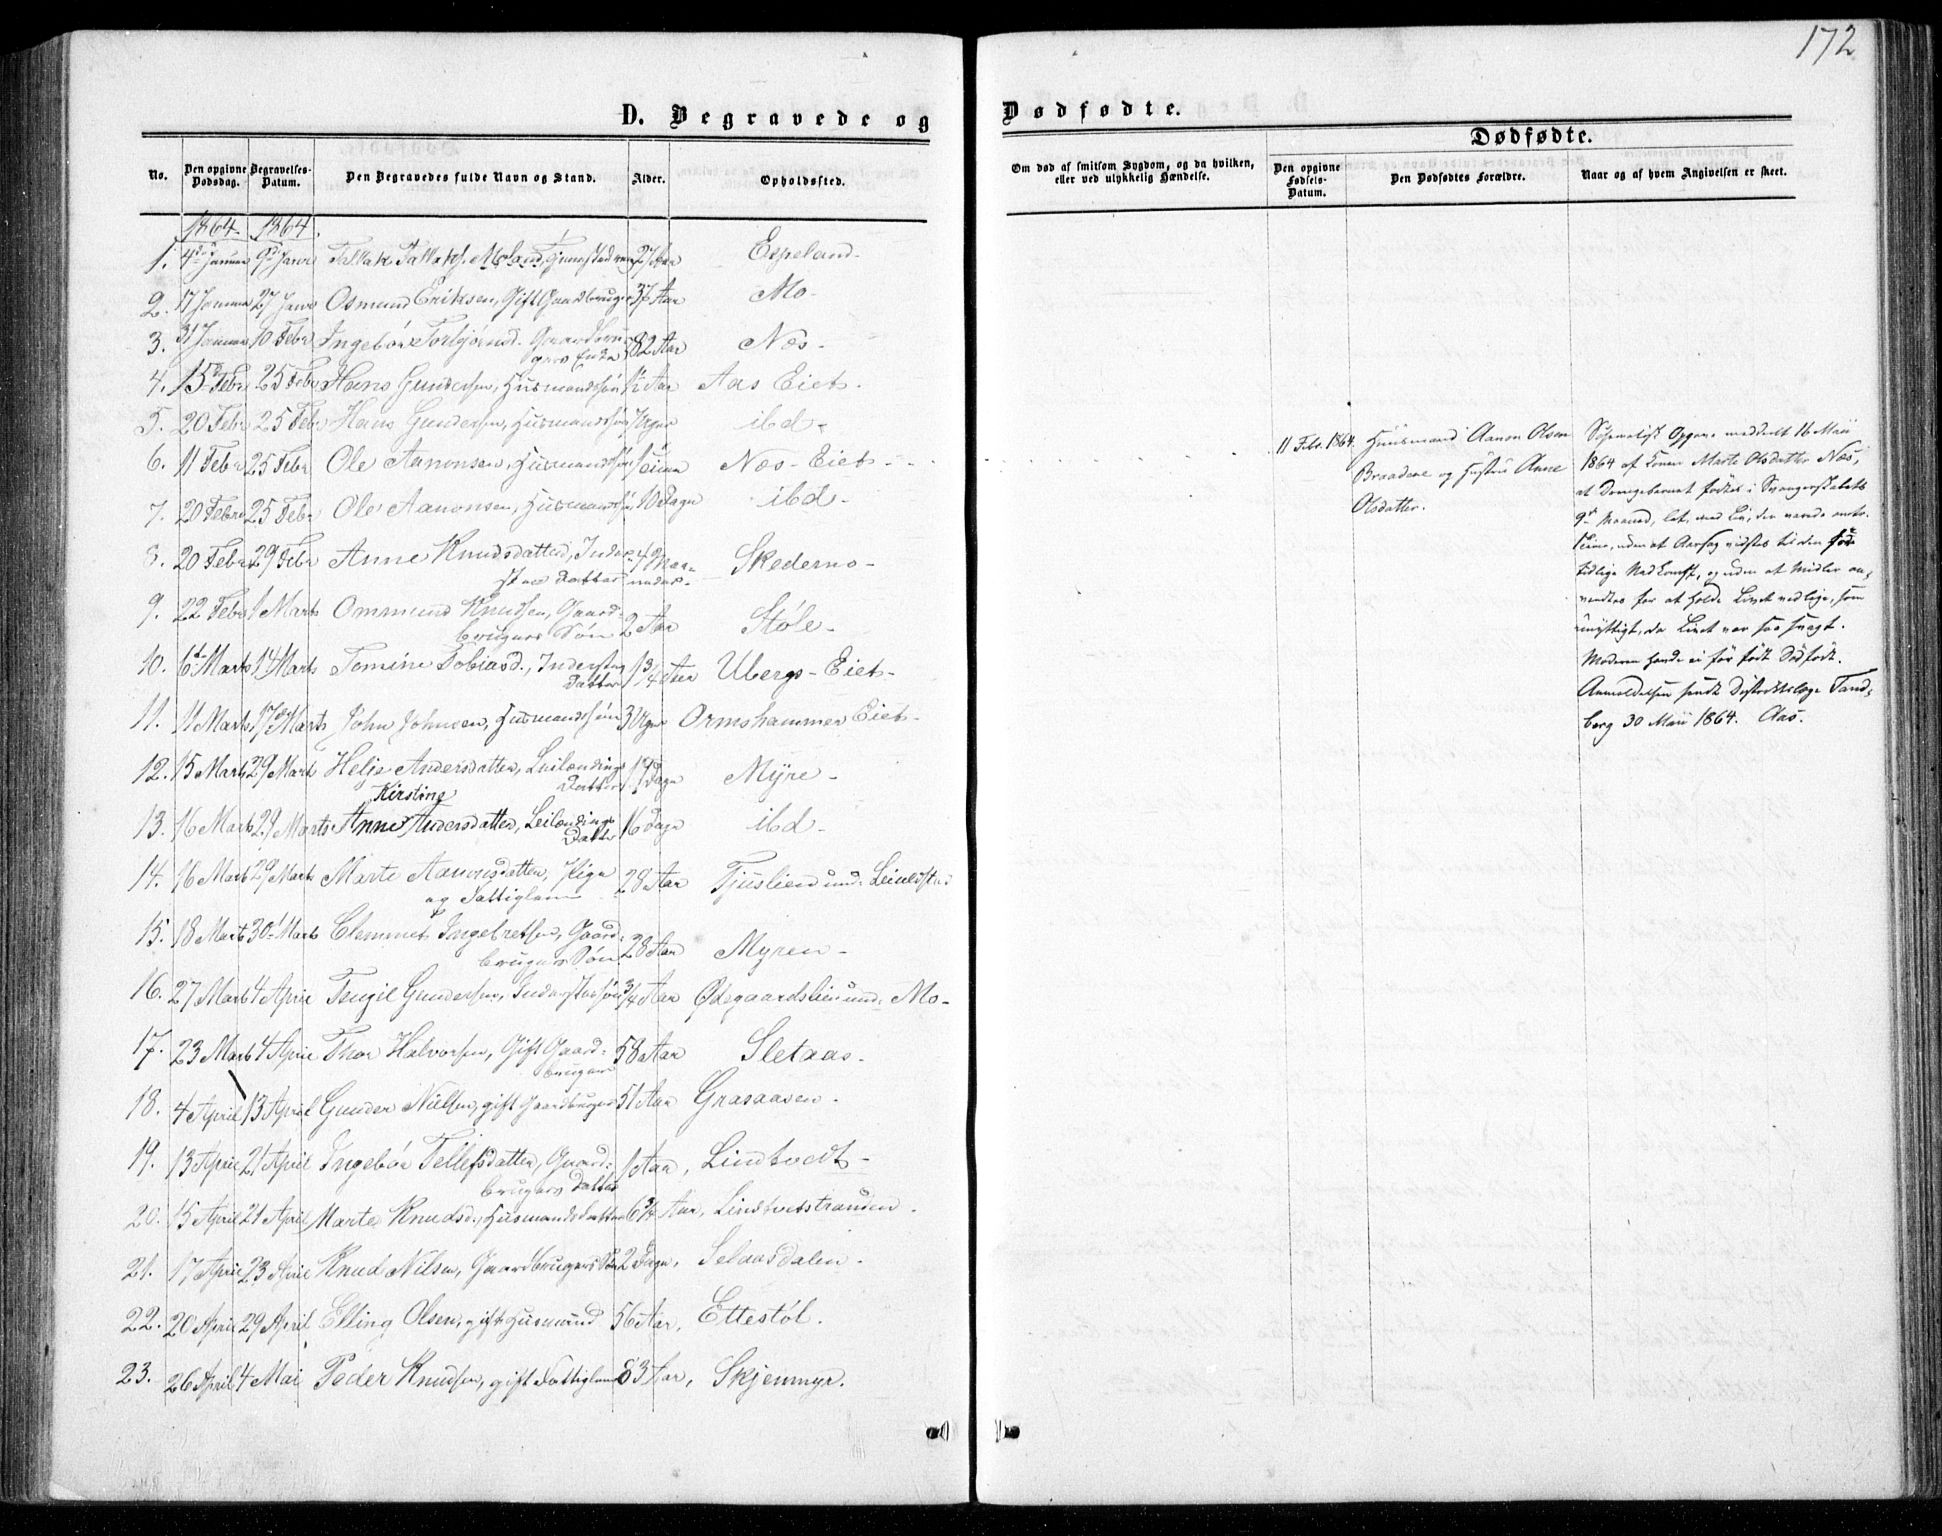 172
D. Begravede og Dødfødte.
Dødfødte.
No. Den opgivne Dødsdag. Begravelses-Datum. Den Begravedes fulde Navn og Stand. Alder. Opholdssted.
Om død af smitsom Sygdom, og da hvilken, eller ved ulykkelig Hændelse. Den opgivne Fødsels-Datum. Den Dødfødtes Forældre. Naar og af hvem Angivelsen er skeet.
1864. 1864.
1. 4de Januar 9de Janr Tallak Tallaks. Moland, 27 Aar Espeland.
2. 17 Januar 27 Janr Osmund Eriksen, Gift Gaardbruger 37 Aar Mo.
3. 31 Januar 10 Febr Ingebor Torbjørnsd. Gaardbru-
gers Enke 82 Aar Næs.
4. 15de Febr 25 Febr Hans Gundersen, Husmandssøn 1½ Aar Aas Eiet.
5. 20 Febr 25 Febr Hans Gundersen, Husmandssøn ibd.
6. 11 Febr 25 Febr Ole Aanonsen, Husmandssøn 1 Time Næs-Eiet
7. 20 Febr 25 Febr Ole Aanonsen, Husmandssøn 10 Dage ibd.
8. 20 Febr 29 Febr Anne Knudsdatter, Inder-
stes Datter 4 Maa-
neder Skederno
9. 22 Febr 1 Marts Ommund Knudsen, Gaard-
brugers Søn 2 Aar Støle
10. 6te Marts 14 Marts Tomine Tobiasd., Inderstes
Datter 1¾ Aar Ubergs-Eiet
11. 11 Marts 17de Marts John Johnsen, Husmandssøn 3 Uger Ormshammer Eiet
12. 15 Marts 29 Marts Helje Andersdatter, Leilændings
Datter 19 Dage Myre
Kirstine
13. 16 Marts 29 Marts Anne Andersdatter, Leilændings
Datter 16 Dage ibd
14. 16 Marts 29 Marts Marte Aanonsdatter, Pige
og Fattiglem 28 Aar Tjuslien und.
15. 18 Marts 30 Marts Clemmet Ingebretsen, Gaard-
brugers Søn 28 Aar Myren
16. 27 Marts 4 April Tengil Gundersen, Inderstes søn ¾ Aar Ødegaardslien und. Mo
17. 23 Marts 4 April Thor Halvorsen, Gift Gaard-
bruger 58 Aar Sletaas
18. 4 April 13 April Gunder Nielsen, gift Gaardbruger 51 Aar Grasaasen
19. 13 April 21 April Ingebor Tellefsdatter, Gaard-
brugers Datter 1 Aar, Lindtvedt
20. 15 April 21 April Marte Knudsd., Husmandsdatter 6¾ Aar, Lindtvetstranden
21. 17 April 23 April Knud Nilsen, Gaardbrugers Søn 2 Dage, Selaasdalen
22. 20 April 29 April Elling Olsen, gift Husmand 56 Aar, Ettestöl.
23. 26 April 4 Mai Peder Knudsen, gift Fattiglem 83 Aar, Skjenmyr.
11 Febr. 1864. Huusmand Aanon Olsen
Braadene og Hustru Anne
Olsdatter.
Opgave meddelt 16 Maii
1864 af Konen Marte Olsdatter Næs,
at Drengebarnet fødtes i Svangerskabets
9de Maaned, lot, med Liv, der varede omtr.
1 Time, uden at Aarsag vidstes til den før
tidlige Nedkomst, og uden at Midler an-
vendtes for at holde Livet vedlige, som
unyttigt, da Livet var saa svagt.
Moderen havde ei før født Dødfødt.
Anmeldelsen sendt Distriktslæge Tand-
berg 30 Maii 1864. Aas.